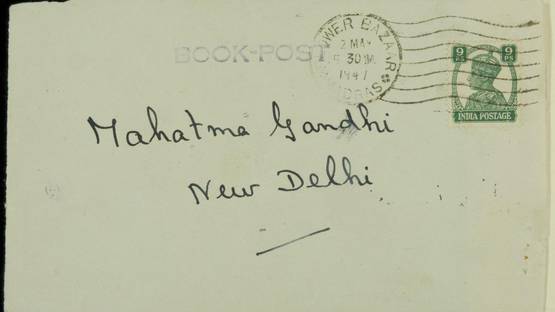 BOOK-POST
OWER BAZAAR
2 MAY
30
1947
MADRAS
9 PS
9 PS
INDIA POSTAGE
Mahatma Gandhi
New Delhi